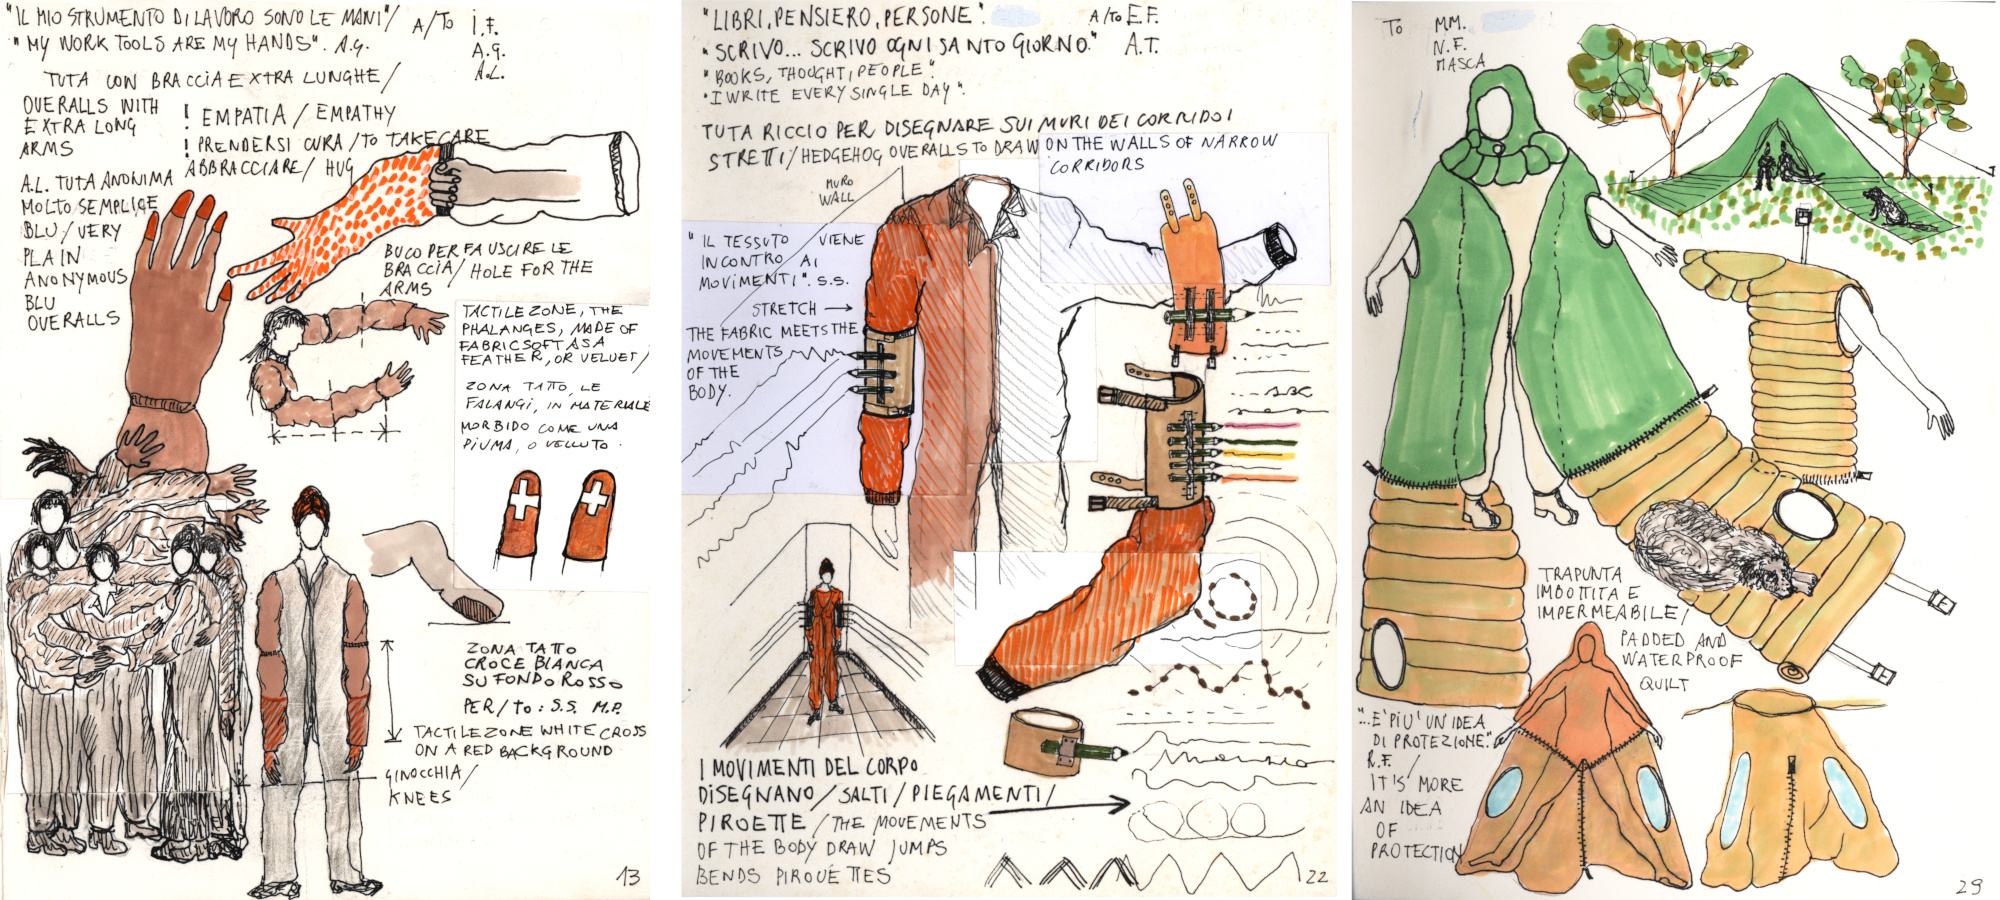 "IL MIO STRUMENTO DI LAVORO SONO LE MANI"/
"MY WORK TOOLS ARE MY HANDS". A.G.
A/TO I.F.
A.G.
A.L.
TUTA CON BRACCIA EXTRA LUNGHE/
OVERALLS WITH
EXTRA LONG
ARMS
! EMPATIA / EMPATHY
! PRENDERSI CURA / TO TAKE CARE
ABBRACCIARE / HUG
A.L. TUTA ANONIMA
MOLTO SEMPLICE
BLU / VERY
PLAIN
ANONYMOUS
BLU
OVERALLS
BUCO PER FA USCIRE LE
BRACCIA / HOLE FOR THE
ARMS
TACTILE ZONE, THE
PHALANGES, MADE OF
FABRIC SOFT AS A
FEATHER, OR VELVET/
ZONA TATTO, LE
FALANGI, IN MATERIALE
MORBIDO COME UNA
PIUMA, O VELLUTO.
ZONA TATTO
CROCE BIANCA
SU FONDO ROSSO
PER / TO: S.S. M.P.
TACTILE ZONE WHITE CROSS
ON A RED BACKGROUND
GINOCCHIA /
KNEES
13
"LIBRI, PENSIERO, PERSONE".
"SCRIVO... SCRIVO OGNI SANTO GIORNO."
A/TO E.F.
A.T.
"BOOKS, THOUGHT, PEOPLE".
"I WRITE EVERY SINGLE DAY".
TUTA RICCIO PER DISEGNARE SUI MURI DEI CORRIDOI
STRETTI / HEDGEHOG OVERALLS TO DRAW ON THE WALLS OF NARROW
CORRIDORS
MURO
WALL
"IL TESSUTO VIENE
INCONTRO AI
MOVIMENTI". S.S.
STRETCH →
THE FABRIC MEETS THE
MOVEMENTS
OF THE
BODY.
ABC
I MOVIMENTI DEL CORPO
DISEGNANO / SALTI / PIEGAMENTI /
PIROETTE / THE MOVEMENTS
OF THE BODY DRAW JUMPS
BENDS PIROUETTES
22
TO MM.
N.F.
MASCA
TRAPUNTA
IMBOTTITA E
IMPERMEABILE/
PADDED AND
WATERPROOF
QUILT
"...E' PIU' UN IDEA
DI PROTEZIONE."
R.F. /
IT'S MORE
AN IDEA
OF
PROTECTION
29